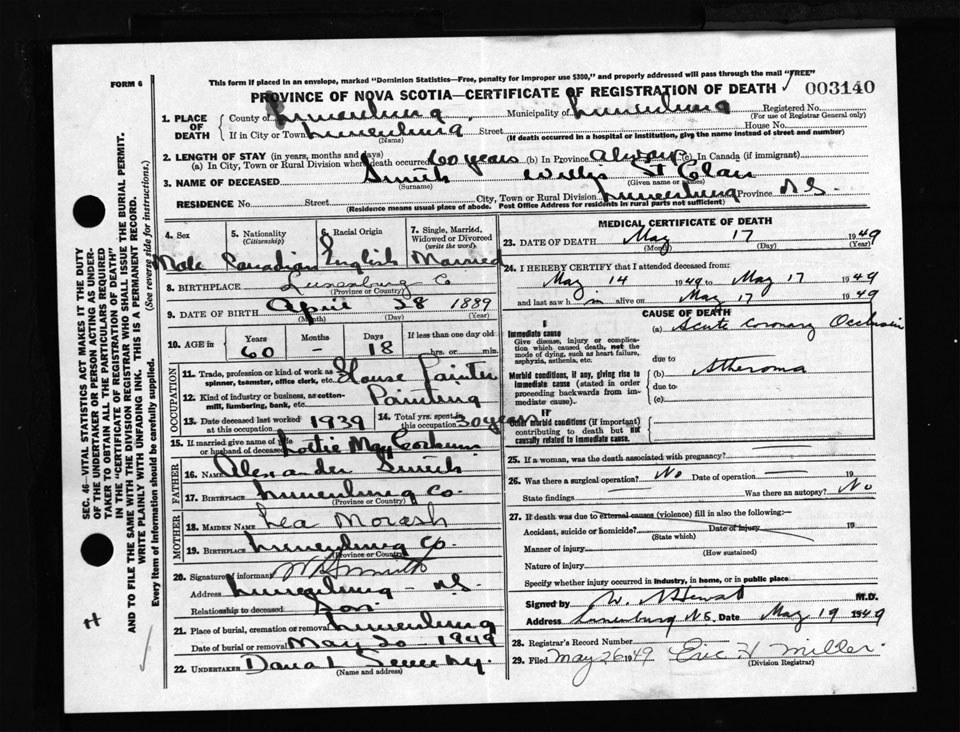 FORM 6
This form if placed in an envelope, marked "Dominion Statistics—Free, penalty for improper use $300," and properly addressed will pass through the mail "FREE"
PROVINCE OF NOVA SCOTIA—CERTIFICATE OF REGISTRATION OF DEATH
003140
1. PLACE OF DEATH
County of Lunenburg Municipality of Lunenburg Registered No.
(For use of Registrar General only)
If in City or Town Lunenburg Street House No.
(Name) (If death occurred in a hospital or institution, give the name instead of street and number)
2. LENGTH OF STAY (in years, months and days)
(a) In City, Town or Rural Division where death occurred 60 years (b) In Province always (c) In Canada (if immigrant)
3. NAME OF DECEASED Smith Willis St Clair
(Surname) (Given name or names)
RESIDENCE No. Street City, Town or Rural Division Lunenburg Province N.S.
(Residence means usual place of abode. Post Office Address for residents in rural parts not sufficient)
4. Sex
Male
5. Nationality
(Citizenship)
Canadian
6. Racial Origin
English
7. Single, Married, Widowed or Divorced
(write the word)
Married
8. BIRTHPLACE Lunenburg Co
(Province or Country)
9. DATE OF BIRTH April 28 1889
(Month) (Day) (Year)
10. AGE in
Years Months Days If less than one day old
60 - 18 hrs. or min.
OCCUPATION
11. Trade, profession or kind of work as spinner, teamster, office clerk, etc. House Painter
12. Kind of industry or business, as cotton-mill, lumbering, bank, etc. Painting
13. Date deceased last worked at this occupation 1939
14. Total yrs. spent in this occupation 30 years
15. If married give name of wife or husband of deceased Lottie May
FATHER
16. NAME Alexander Smith
17. BIRTHPLACE Lunenburg Co.
(Province or Country)
MOTHER
18. MAIDEN NAME Lea Morash
19. BIRTHPLACE Lunenburg Co.
(Province or Country)
20. Signature of informant Smith
Address Lunenburg N.S.
Relationship to deceased Son
21. Place of burial, cremation or removal Lunenburg
Date of burial or removal May 20 1949
22. UNDERTAKER
(Name and address)
MEDICAL CERTIFICATE OF DEATH
23. DATE OF DEATH May 17 1949
(Month) (Day) (Year)
24. I HEREBY CERTIFY that I attended deceased from:
May 14 1949 to May 17 1949
and last saw h im alive on May 17 1949
CAUSE OF DEATH
I
Immediate cause
Give disease, injury or complication which caused death, not the mode of dying, such as heart failure, asphyxia, asthenia, etc.
(a) Acute coronary Occlusion
due to
Morbid conditions, if any, giving rise to immediate cause (stated in order proceeding backwards from immediate cause).
(b) Atheroma
due to
(c)
II
Other morbid conditions (if important) contributing to death but not causally related to immediate cause.
25. If a woman, was the death associated with pregnancy?
26. Was there a surgical operation? No Date of operation 19
State findings Was there an autopsy? No
27. If death was due to external causes (violence) fill in also the following:—
Accident, suicide or homicide? Date of injury 19
(State which)
Manner of injury
(How sustained)
Nature of injury
Specify whether injury occurred in industry, in home, or in public place
Signed by M.D.
Address Lunenburg N.S. Date May 19 1949
28. Registrar's Record Number
29. Filed May 26 1949 Eric H Miller
(Division Registrar)
SEC. 46—VITAL STATISTICS ACT MAKES IT THE DUTY
OF THE UNDERTAKER OR PERSON ACTING AS UNDER-
TAKER TO OBTAIN ALL THE PARTICULARS REQUIRED
IN THE "CERTIFICATE OF REGISTRATION OF DEATH"
AND TO FILE THE SAME WITH THE DIVISION REGISTRAR WHO SHALL ISSUE THE BURIAL PERMIT.
WRITE PLAINLY WITH UNFADING INK. THIS IS A PERMANENT RECORD.
Every item of Information should be carefully supplied. (See reverse side for instructions.)